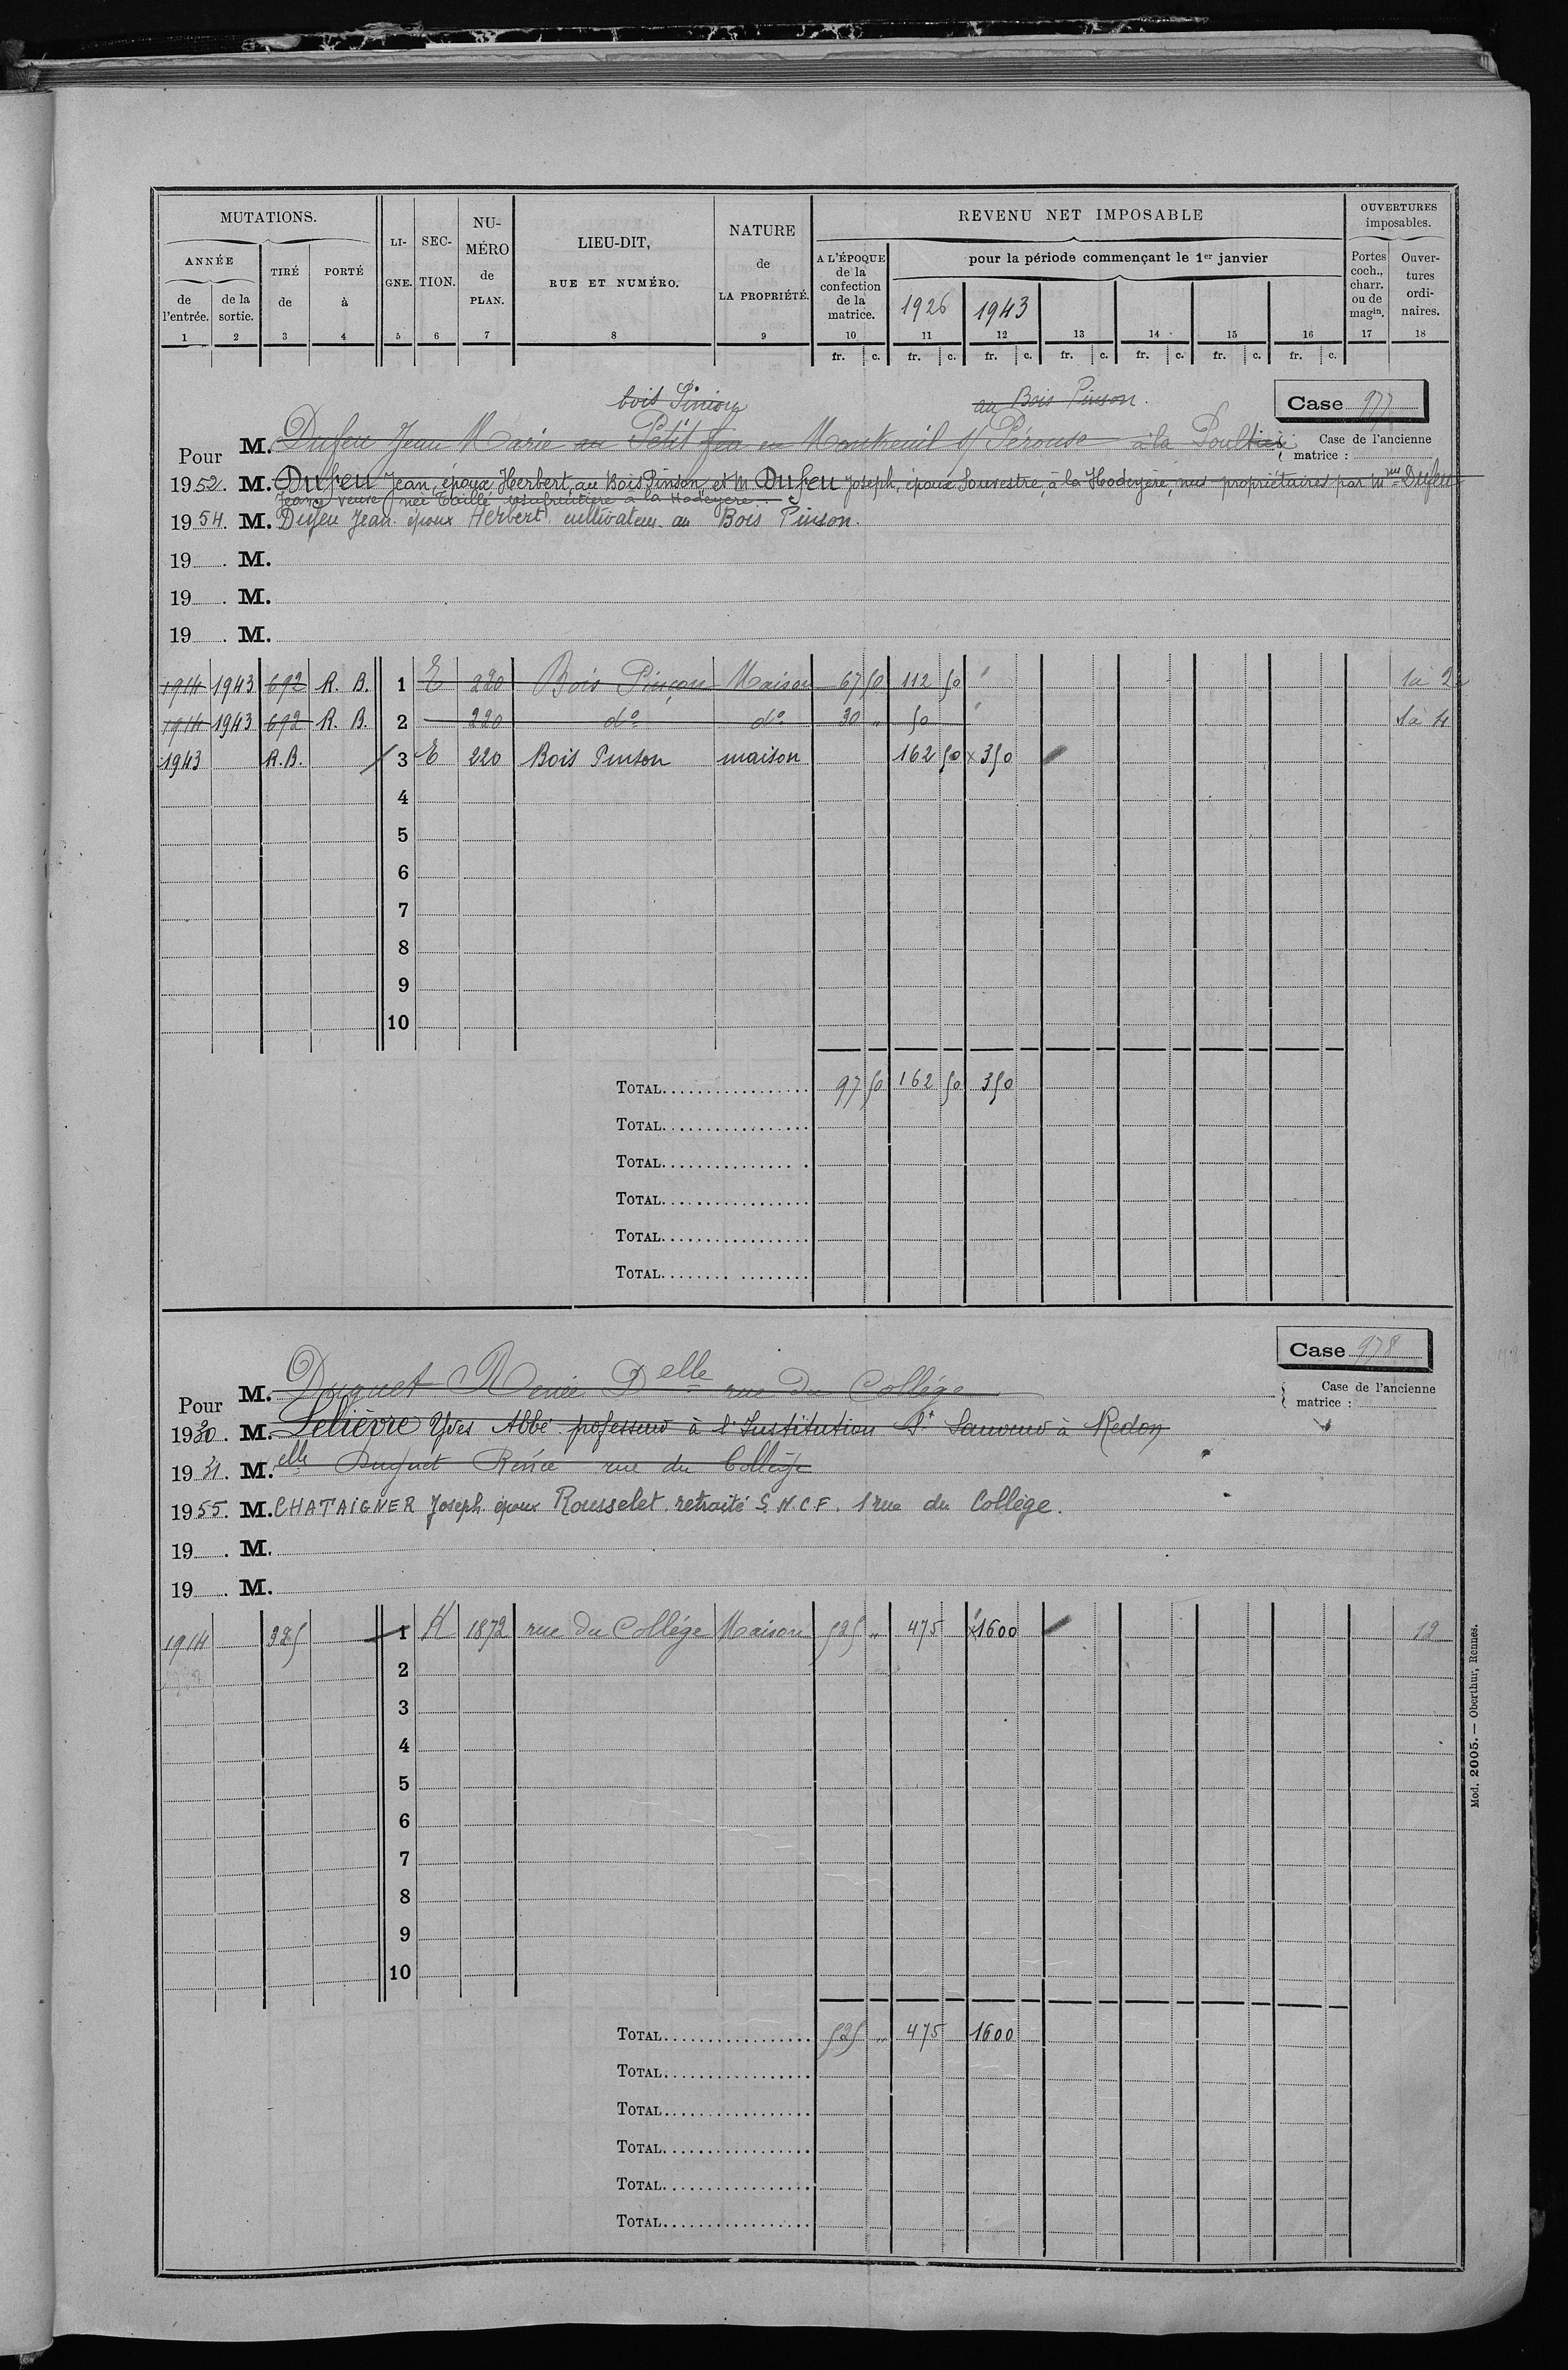 MUTATIONS. LI-GNE. SEC-TION. NU-MÉRO de PLAN. LIEU-DIT, RUE ET NUMÉRO. NATURE de LA PROPRIÉTÉ. REVENU NET IMPOSABLE OUVERTURES imposables.
ANNÉE TIRÉ de PORTÉ à A L'ÉPOQUE de la confection de la matrice. pour la période commençant le 1er janvier Portes coch., charr. ou de magin. Ouver-tures ordi-naires.
de l'entrée. de la sortie. 1926 1943
1 2 3 4 5 6 7 8 9 10 11 12 13 14 15 16 17 18
fr. c. fr. c. fr. c. fr. c. fr. c. fr. c. fr. c.
bois Pinson au Bois Pinson. Case 977
Pour M. Dufeu Jean Marie au Petit feu en Montreuil s/ Pérouse à la Case de l'ancienne matrice :
1952. M. Dufeu Jean, époux Herbert, au Bois Pinson et M. Dufeu Joseph, époux Souvestre, à la Hodeyère, nus propriétaires par Mme Dufeu
Jean, veuve née Taillé usufruitière à la Hodeyère.
1954. M. Dufeu Jean époux Herbert cultivateur au Bois Pinson.
19 . M.
19 . M.
19 . M.
1914 1943 692 R. B. 1 E 220 Bois Pinçon Maison 67 50 112 50 "
1914 1943 692 R. B. 2 220 do do 30 " 50 "
1943 R.B. 3 E 220 Bois Pinson maison 162 50 x 350
4
5
6
7
8
9
10
TOTAL 97 50 162 50 350
TOTAL
TOTAL
TOTAL
TOTAL
TOTAL
Case 978
Pour M. Duguet Renée Delle rue du Collége Case de l'ancienne matrice :
1930. M. Lelièvre Yves Abbé professeur à l'Institution St Sauveur à Redon
1931. M.elle Duguet Renée rue du Collège
1955. M. CHATAIGNER Joseph époux Rousselet retraité S.N.C.F. 1 rue du Collège.
19 . M.
19 . M.
1914 325 1 K 1872 rue du Collége Maison 525 " 475 x1600 12
2
3
4
5
6
7
8
9
10
TOTAL 525 " 475 1600
TOTAL
TOTAL
TOTAL
TOTAL
TOTAL
Mod. 2005. — Oberthur, Rennes.